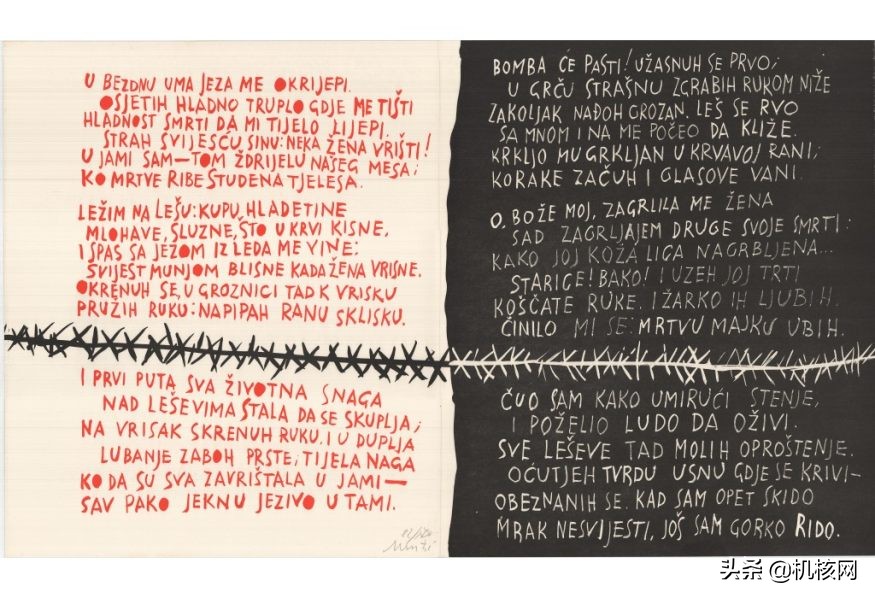 U BEZDNU UMA JEZA ME OKRIJEPI.
OSJETIH HLADNO TRUPLO GDJE ME TIŠTI
HLADNOST SMRTI DA MI TIJELO LIJEPI.
STRAH SVIJEŠĆU SINU: NEKA ŽENA VRIŠTI!
U JAMI SAM—TOM ŽDRIJELU NAŠEG MESA;
KO MRTVE RIBE STUDENA TJELESA.
LEŽIM NA LEŠU: KUPU, HLADETINE
MLOHAVE, SLUZNE, ŠTO U KRVI KISNE,
I SPAS SA JEZOM IZ LEDA ME VINE:
SVIJEST MUNJOM BLISNE KADA ŽENA VRISNE.
OKRENUH SE, U GROZNICI TAD K VRISKU
PRUŽIH RUKU: NAPIPAH RANU SKLISKU.
I PRVI PUTA SVA ŽIVOTNA SNAGA
NAD LEŠEVIMA STALA DA SE SKUPLJA;
NA VRISAK SKRENUH RUKU. I U DUPLJA
LUBANJE ZABOH PRSTE; TIJELA NAGA
KO DA SU SVA ZAVRIŠTALA U JAMI—
SAV PAKO JEKNU JEZIVO U TAMI.
BOMBA ĆE PASTI! UŽASNUH SE PRVO;
U GRČU STRAŠNU ZGRABIH RUKOM NIŽE
ZAKOLJAK NAĐOH GROZAN. LEŠ SE RVO
SA MNOM I NA ME POČEO DA KLIŽE.
KRKLJO MU GRKLJAN U KRVAVOJ RANI;
KORAKE ZAČUH I GLASOVE VANI.
O, BOŽE MOJ, ZAGRLILA ME ŽENA
SAD ZAGRLJAJEM DRUGE SVOJE SMRTI:
KAKO JOJ KOŽA LIGA NAGRBLJENA...
STARICE! BAKO! I UZEH JOJ TRTI
KOŠČATE RUKE. I ŽARKO IH LJUBIH.
ČINILO MI SE: MRTVU MAJKU UBIH.
ČUO SAM KAKO UMIRUĆI STENJE,
I POŽELIO LUDO DA OŽIVI.
SVE LEŠEVE TAD MOLIH OPROŠTENJE.
OĆUTJEH TVRDU USNU GDJE SE KRIVI—
OBEZNANIH SE. KAD SAM OPET SKIDO
MRAK NESVIJESTI, JOŠ SAM GORKO RIDO.
头条 @机核网